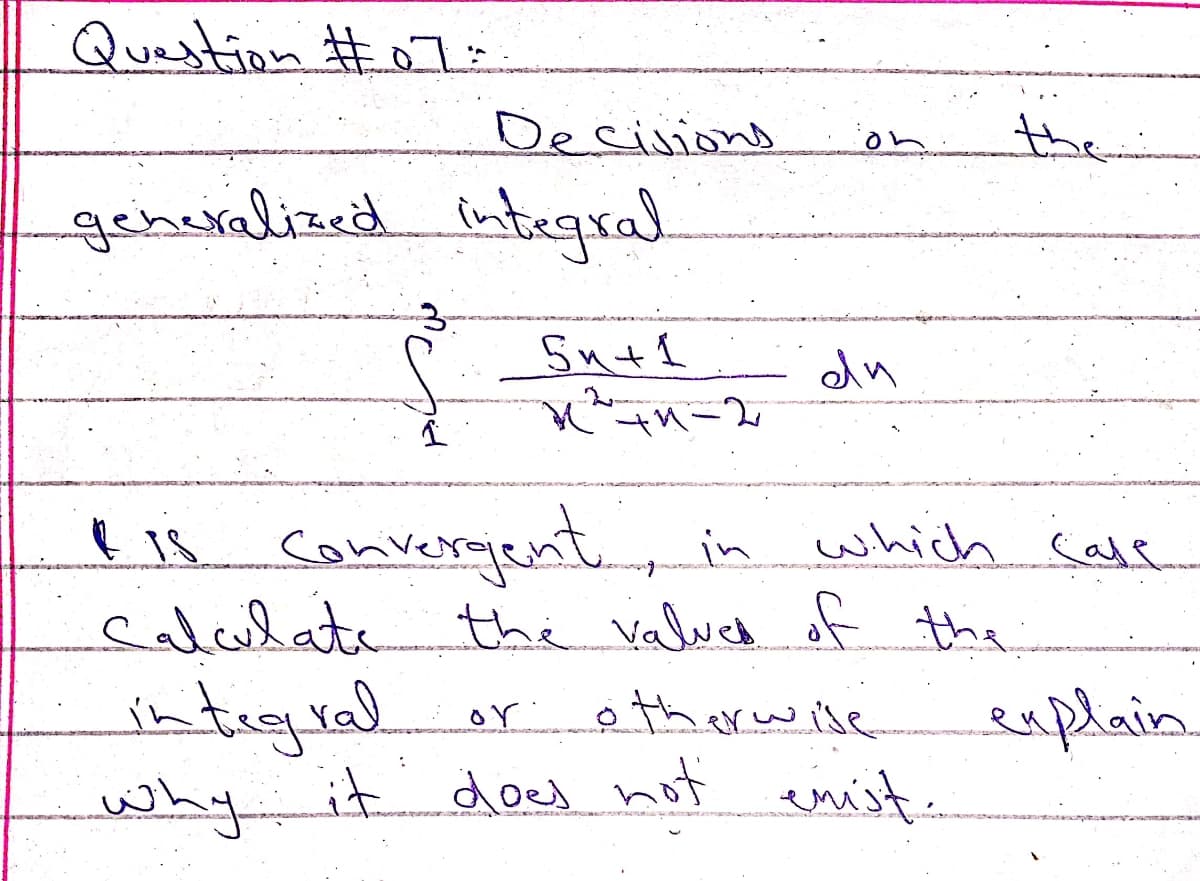 Question # 07:-
Decisions on the
generalized integral
∫₁³ (5x+1)/(x²+x-2) dx
is convergent, in which case
calculate the values of the
integral or otherwise explain
why it does not exist.